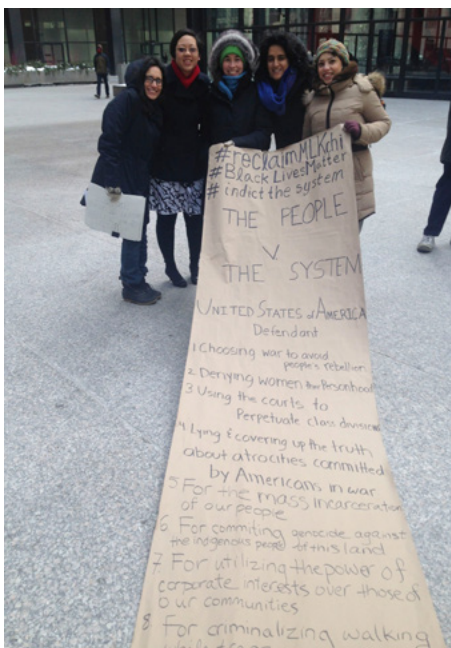 #reclaimMLKchi
#BlackLivesMatter
# indict the system
THE PEOPLE
V.
THE SYSTEM
UNITED STATES of AMERICA
Defendant
1 Choosing war to avoid
people's rebellion
2. Denying women their Personhood
3. Using the courts to
Perpetuate class divisions
4. Lying & covering up the truth
about atrocities committed
by Americans in war
5 For the mass incarceration
of our people
6. For commiting genocide against
the indigenous people of this land
7. For utilizing the power of
corporate interests over those of
our communities
8 For criminalizing walking